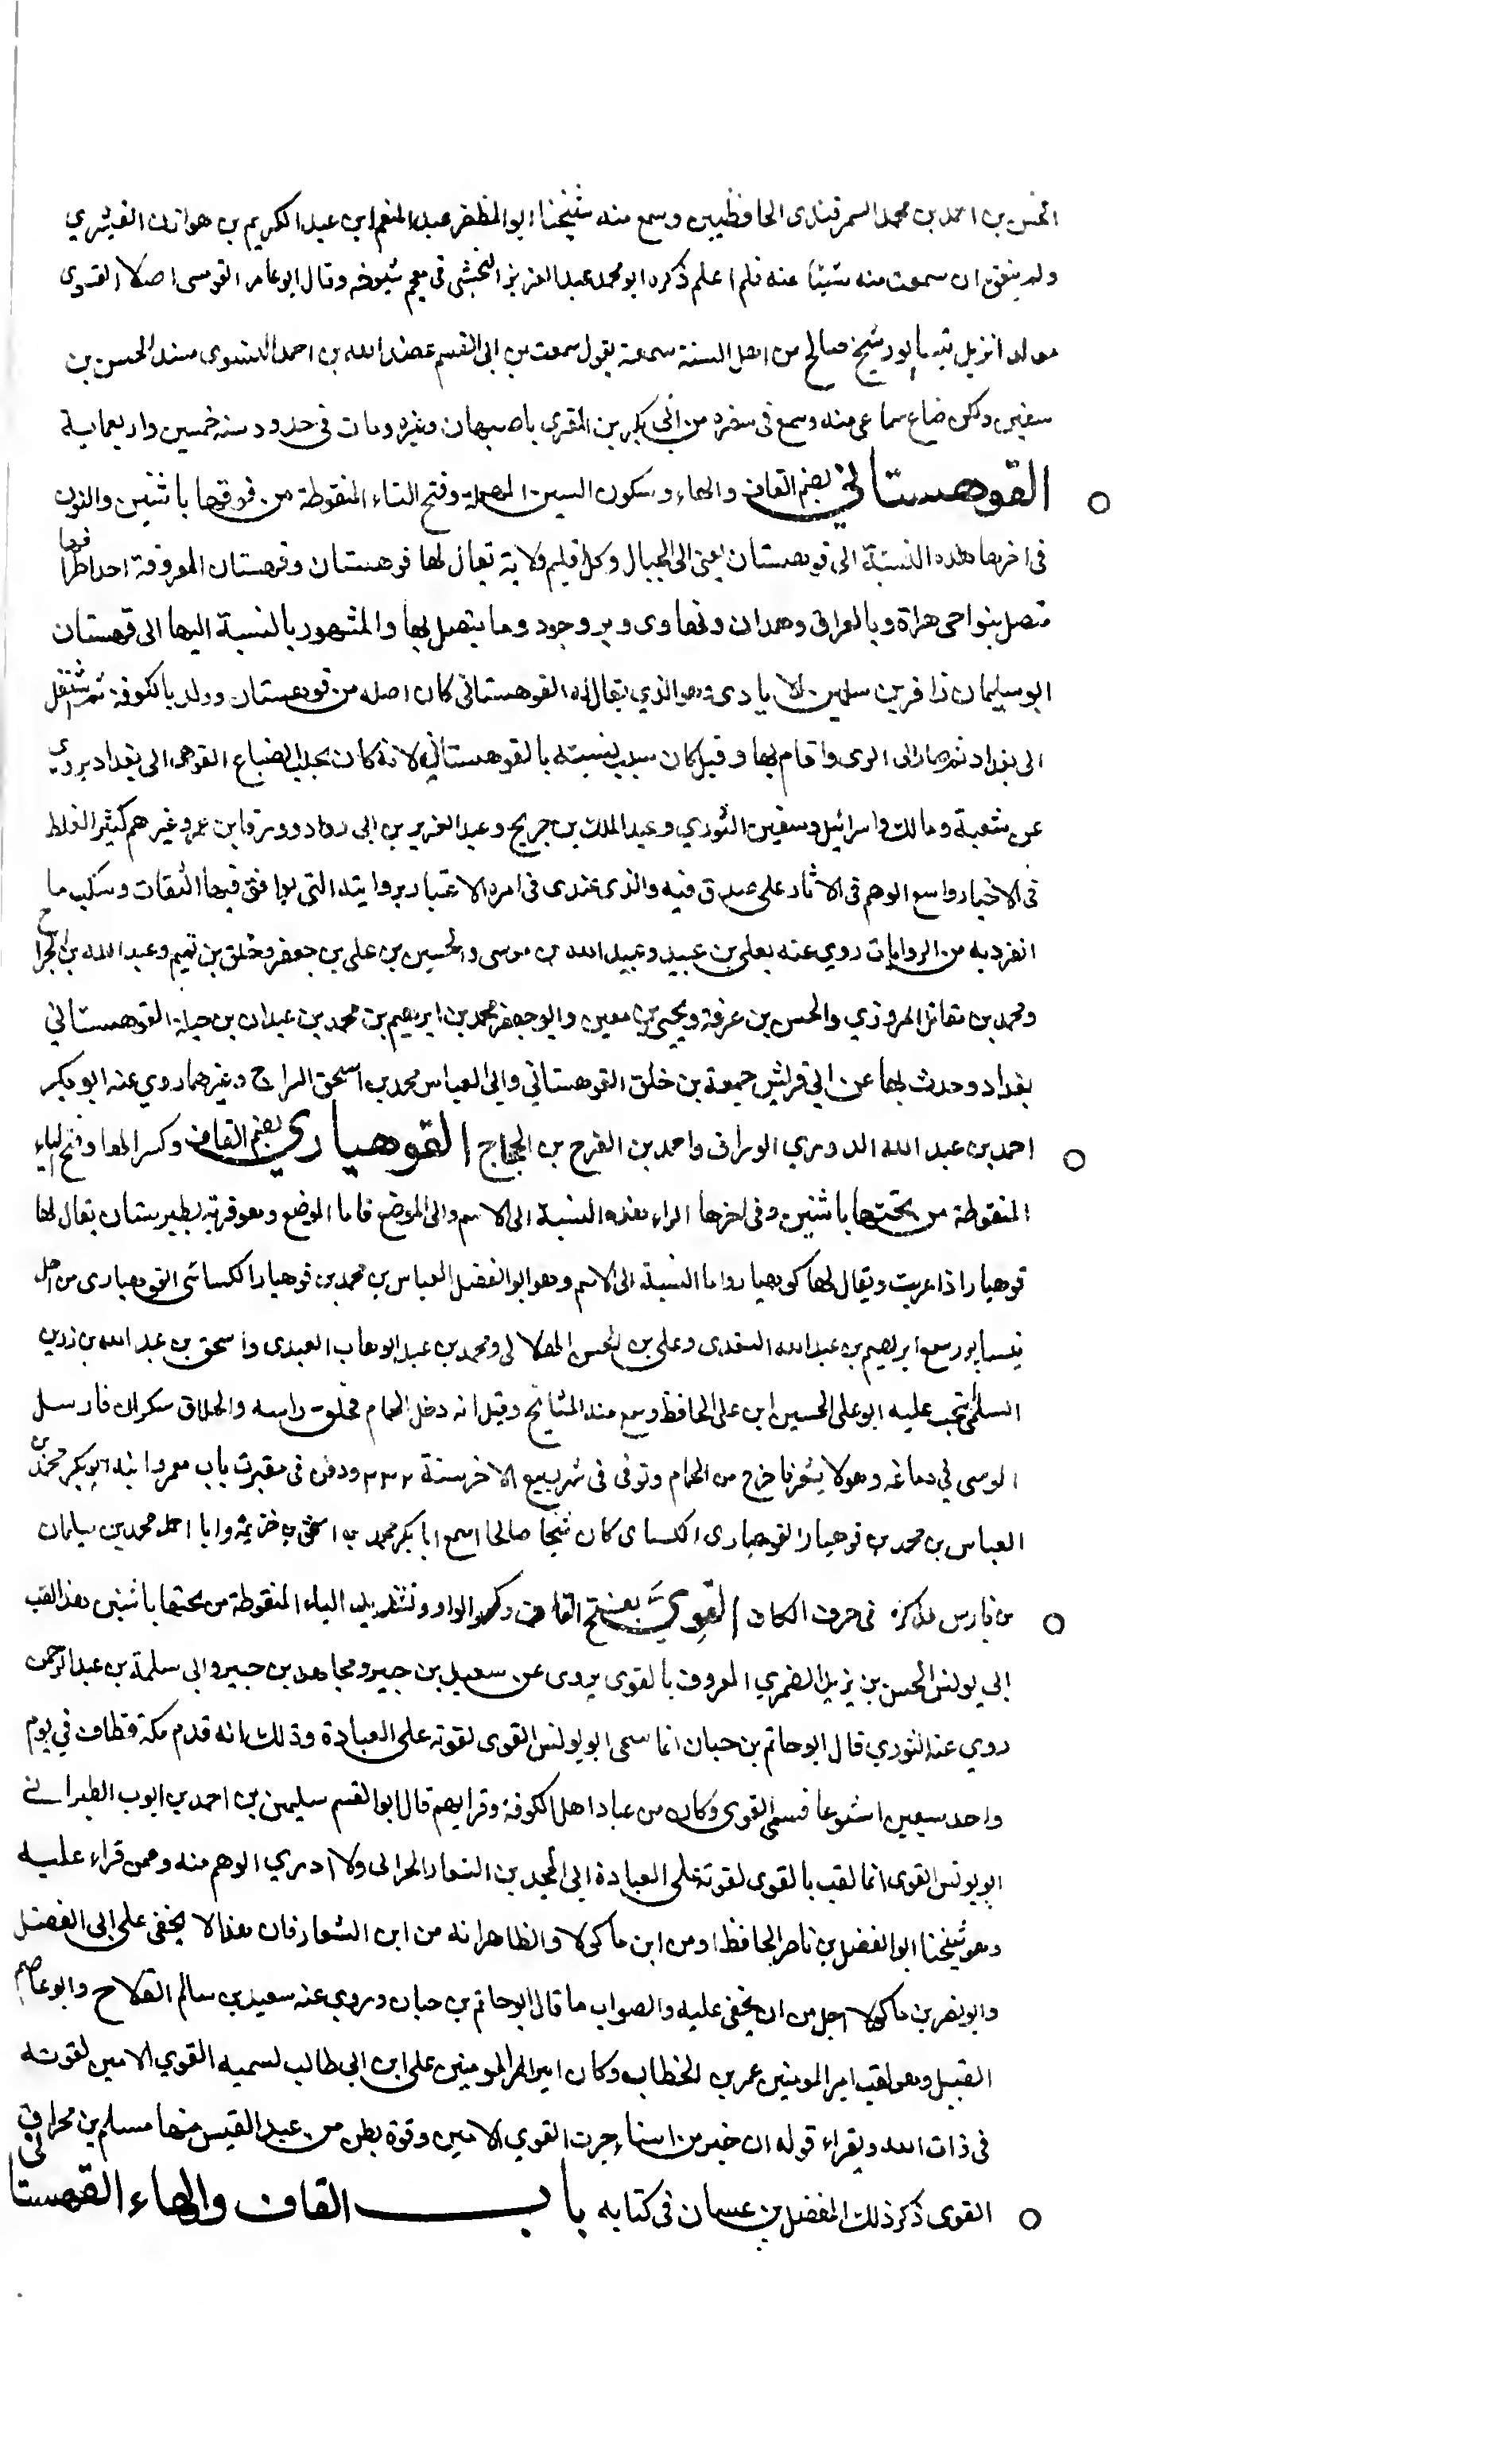 الحسن بن احمد بن محمد السمرقندى الحافظين وسمع منه شيخنا ابو المظفر عبد المنعم ابن عبد الكريم بن هوازن القشيري
ولم يتفق ان سمعت منه شيئا عنه فلم اعلم ذكره ابو محمد عبد العزيز النخشبى فى معجم شيوخه وقال ابو عامر القوسى اصلا النسوى
مولدا نزيل نيسابور شيخ صالح من اهل السنة سمعته يقول سمعت من ابى القسم عبد الله بن احمد النسوى مسند الحسن بن
سفين ولكن ضاع سماعى منه وسمع فى سفره من ابى بكر بن المقرى باصبهان وغيره ومات فى حدود سنه خمسين واربعماية
القوهستاني بضم القاف والهاء وسكون السين المهملة وفتح التاء المنقوطة من فوقها باثنين والنون
فى اخرها هذه النسبة الى قوهستان يعنى الى الجبال وكل اقليم ولاية تقال لها قوهستان وقهستان المعروفة احد اطرافها
متصل بنواحى هراة وبالعراق وهمدان ونهاوى وبروجود وما يتصل بها والمشهور بالنسبة اليها الى قهستان
ابو سليمان زافر بن سليمن الايادى وهو الذي يقال له القوهستانى كان اصله من قوهستان وولد بالكوفة ثم انتقل
الى بغداد ثم صار الى الرى واقام بها وقيل كان سبب نسبته بالقوهستاني لانه كان يجلب المتاع القوهى الى بغداد يروي
عن شعبة ومالك واسرائيل وسفين الثوري وعبد الملك بن جريج وعبد العزيز بن ابى رواد وورقا بن عمرو غيرهم كثير الغلط
فى الاخبار واسع الوهم فى الاثار على صدق فيه والذى عندى فى امره الاعتبار بروايته التى يوافق فيها الثقات وتنكب ما
انفرد به من الروايات روي عنه يعلى بن عبيد وعبيد الله بن موسى والحسين بن على بن جعفر وخلف بن تميم وعبد الله بن الجراح
ومحمد بن مقاتل المروزي والحسن بن عرفة ويحيى بن معين وابو جعفر محمد بن ابرهيم بن محمد بن عبدان بن جبلة القوهستاني
بغداد وحدث بها عن ابي قريش جمعة بن خلف القوهستاني وابى العباس محمد بن اسحق السراج وغيرهما روي عنه ابو بكر
احمد بن عبد الله الدوري الوراق واحمد بن الفرج بن الحجاج القوهياري بضم القاف وكسر الها وفتح الياء
المنقوطة من تحتها باثنين وفى اخرها الراء هذه النسبة الى الاسم والى الموضع فاما الموضع وهو قرية بطبرستان يقال لها
قوهيار اذا عربت ويقال لها كوهيار واما النسبة الى الاسم وهو ابو الفضل العباس بن محمد بن قوهيار الكسائى القوهيارى من اهل
نيسابور سمع ابرهيم بن عبد الله السعدى وعلى بن الحسن الهلالى ومحمد بن عبد الوهاب العبدى واسحق بن عبد الله بن رزين
السلمى انتخب عليه ابو على الحسين ابن على الحافظ وسمع منه المشايخ وقيل انه دخل الحمام فحلق راسه والحلاق سكران فارسل
الموسى في دماغه وهو لا يشعر فاخرج من الحمام وتوفى فى شهر ربيع الاخر سنة ٣٣٢ ودفن فى مقبرة باب معمر وابنه ابو بكر محمد بن
العباس بن محمد بن قوهيار القوهيارى الكساى كان شيخا صالحا سمع ابا بكر محمد بن اسحق بن خزيمة وابا احمد محمد بن سليمان
بن فارس ذكره فى حرف الكاف القوي بفتح القاف وكسر الواو وتشديد الياء المنقوطة من تحتها باثنين هذا لقب
ابى يونس الحسن بن يزيد الضمري المعروف بالقوى يروى عن سعيد بن جبير ومجاهد بن جبير وابى سلمة بن عبد الرحمن
روي عنه الثوري قال ابو حاتم بن حبان انما سمى ابو يونس القوى لقوته على العبادة وذلك انه قدم مكة فطاف في يوم
واحد سبعين اسبوعا فسمى القوى وكان من عباد اهل الكوفة وقرايهم قال ابو القسم سليمن بن احمد بن ايوب الطبراني
ابو يونس القوى انما لقب بالقوى لقوته على العبادة ابى المجد بن الشعار الحرانى ولا ادري الوهم منه وممن قراء عليه
وهو شيخنا ابو الفضل بن ناصر الحافظ او من ابن ماكولا والظاهر انه من ابن الشعار فان هذا لا يخفى على ابى الفضل
وابو نصر بن ماكولا اجل من ان يخفى عليه والصواب ما قال ابو حاتم بن حبان وروي عنه سعيد بن سالم القلاح وابو عاصم
القبيل وهو لقب امير المومنين عمر بن الخطاب وكان امير المومنين على ابن ابى طالب لسميه القوي الامين لقوته
فى ذات الله ويقراء قوله ان خير من استاجرت القوي الامين وقوة بطن من عبد القيس منها مسلم بن مخراق
القوى ذكر ذلك المفضل بن غسان فى كتابه باب القاف والهاء القهستانى